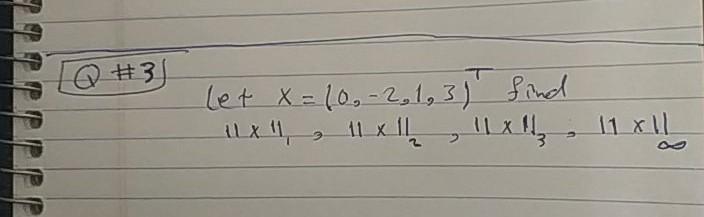 Q #3
let x = (0, -2, 1, 3)ᵀ find
||x||₁ , ||x||₂ , ||x||₃ , ||x||∞